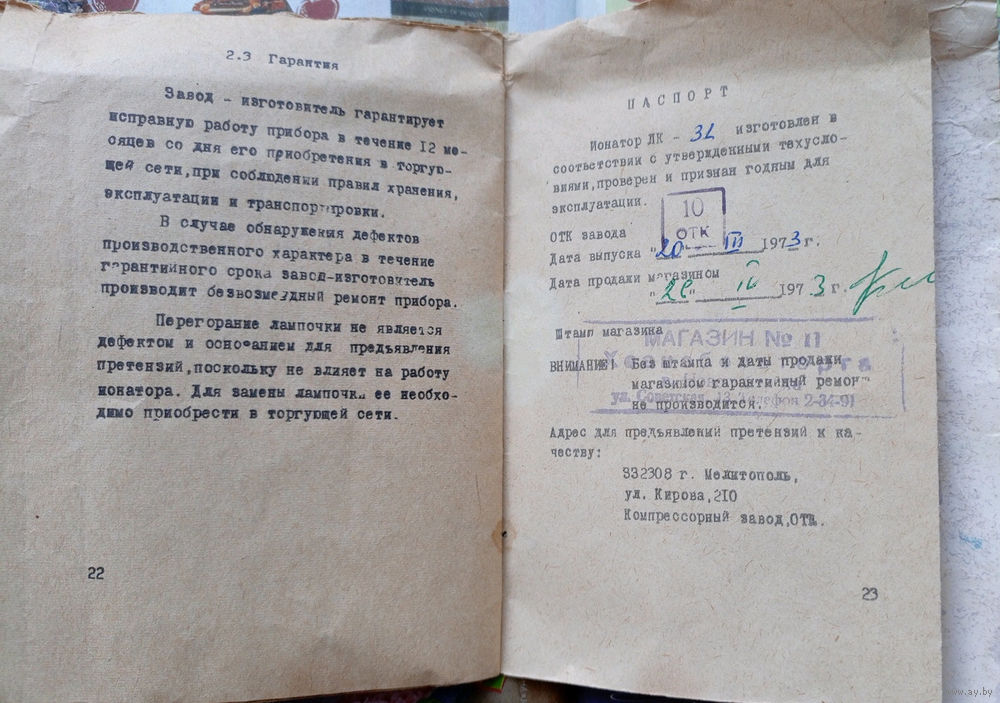 2.3 Гарантия
Завод - изготовитель гарантирует
исправную работу прибора в течение 12 ме-
сяцев со дня его приобретения в торгую-
щей сети,при соблюдении правил хранения,
эксплуатации и транспортировки.
В случае обнаружения дефектов
производственного характера в течение
гарантийного срока завод-изготовитель
производит безвозмездный ремонт прибора.
Перегорание лампочки не является
дефектом и основанием для предъявления
претензий,поскольку не влияет на работу
ионатора. Для замены лампочки ее необхо-
димо приобрести в торгующей сети.
22
ПАСПОРТ
Ионатор ЛК - 31 изготовлен в
соответствии с утвержденными техусло-
виями,проверен и признан годным для
эксплуатации.
10
ОТК
ОТК завода
Дата выпуска "20" III 1973 г.
Дата продажи магазином
"28" IV 1973 г.
Штамп магазина
МАГАЗИН № 11
ВНИМАНИЕ! Без штампа и даты продажи
магазином гарантийный ремонт
ул. Советская, 13 Телефон 2-34-91
не производится.
Адрес для предъявлений претензий к ка-
честву:
332308 г. Мелитополь,
ул. Кирова,210
Компрессорный завод,ОТК.
23
www.ay.by